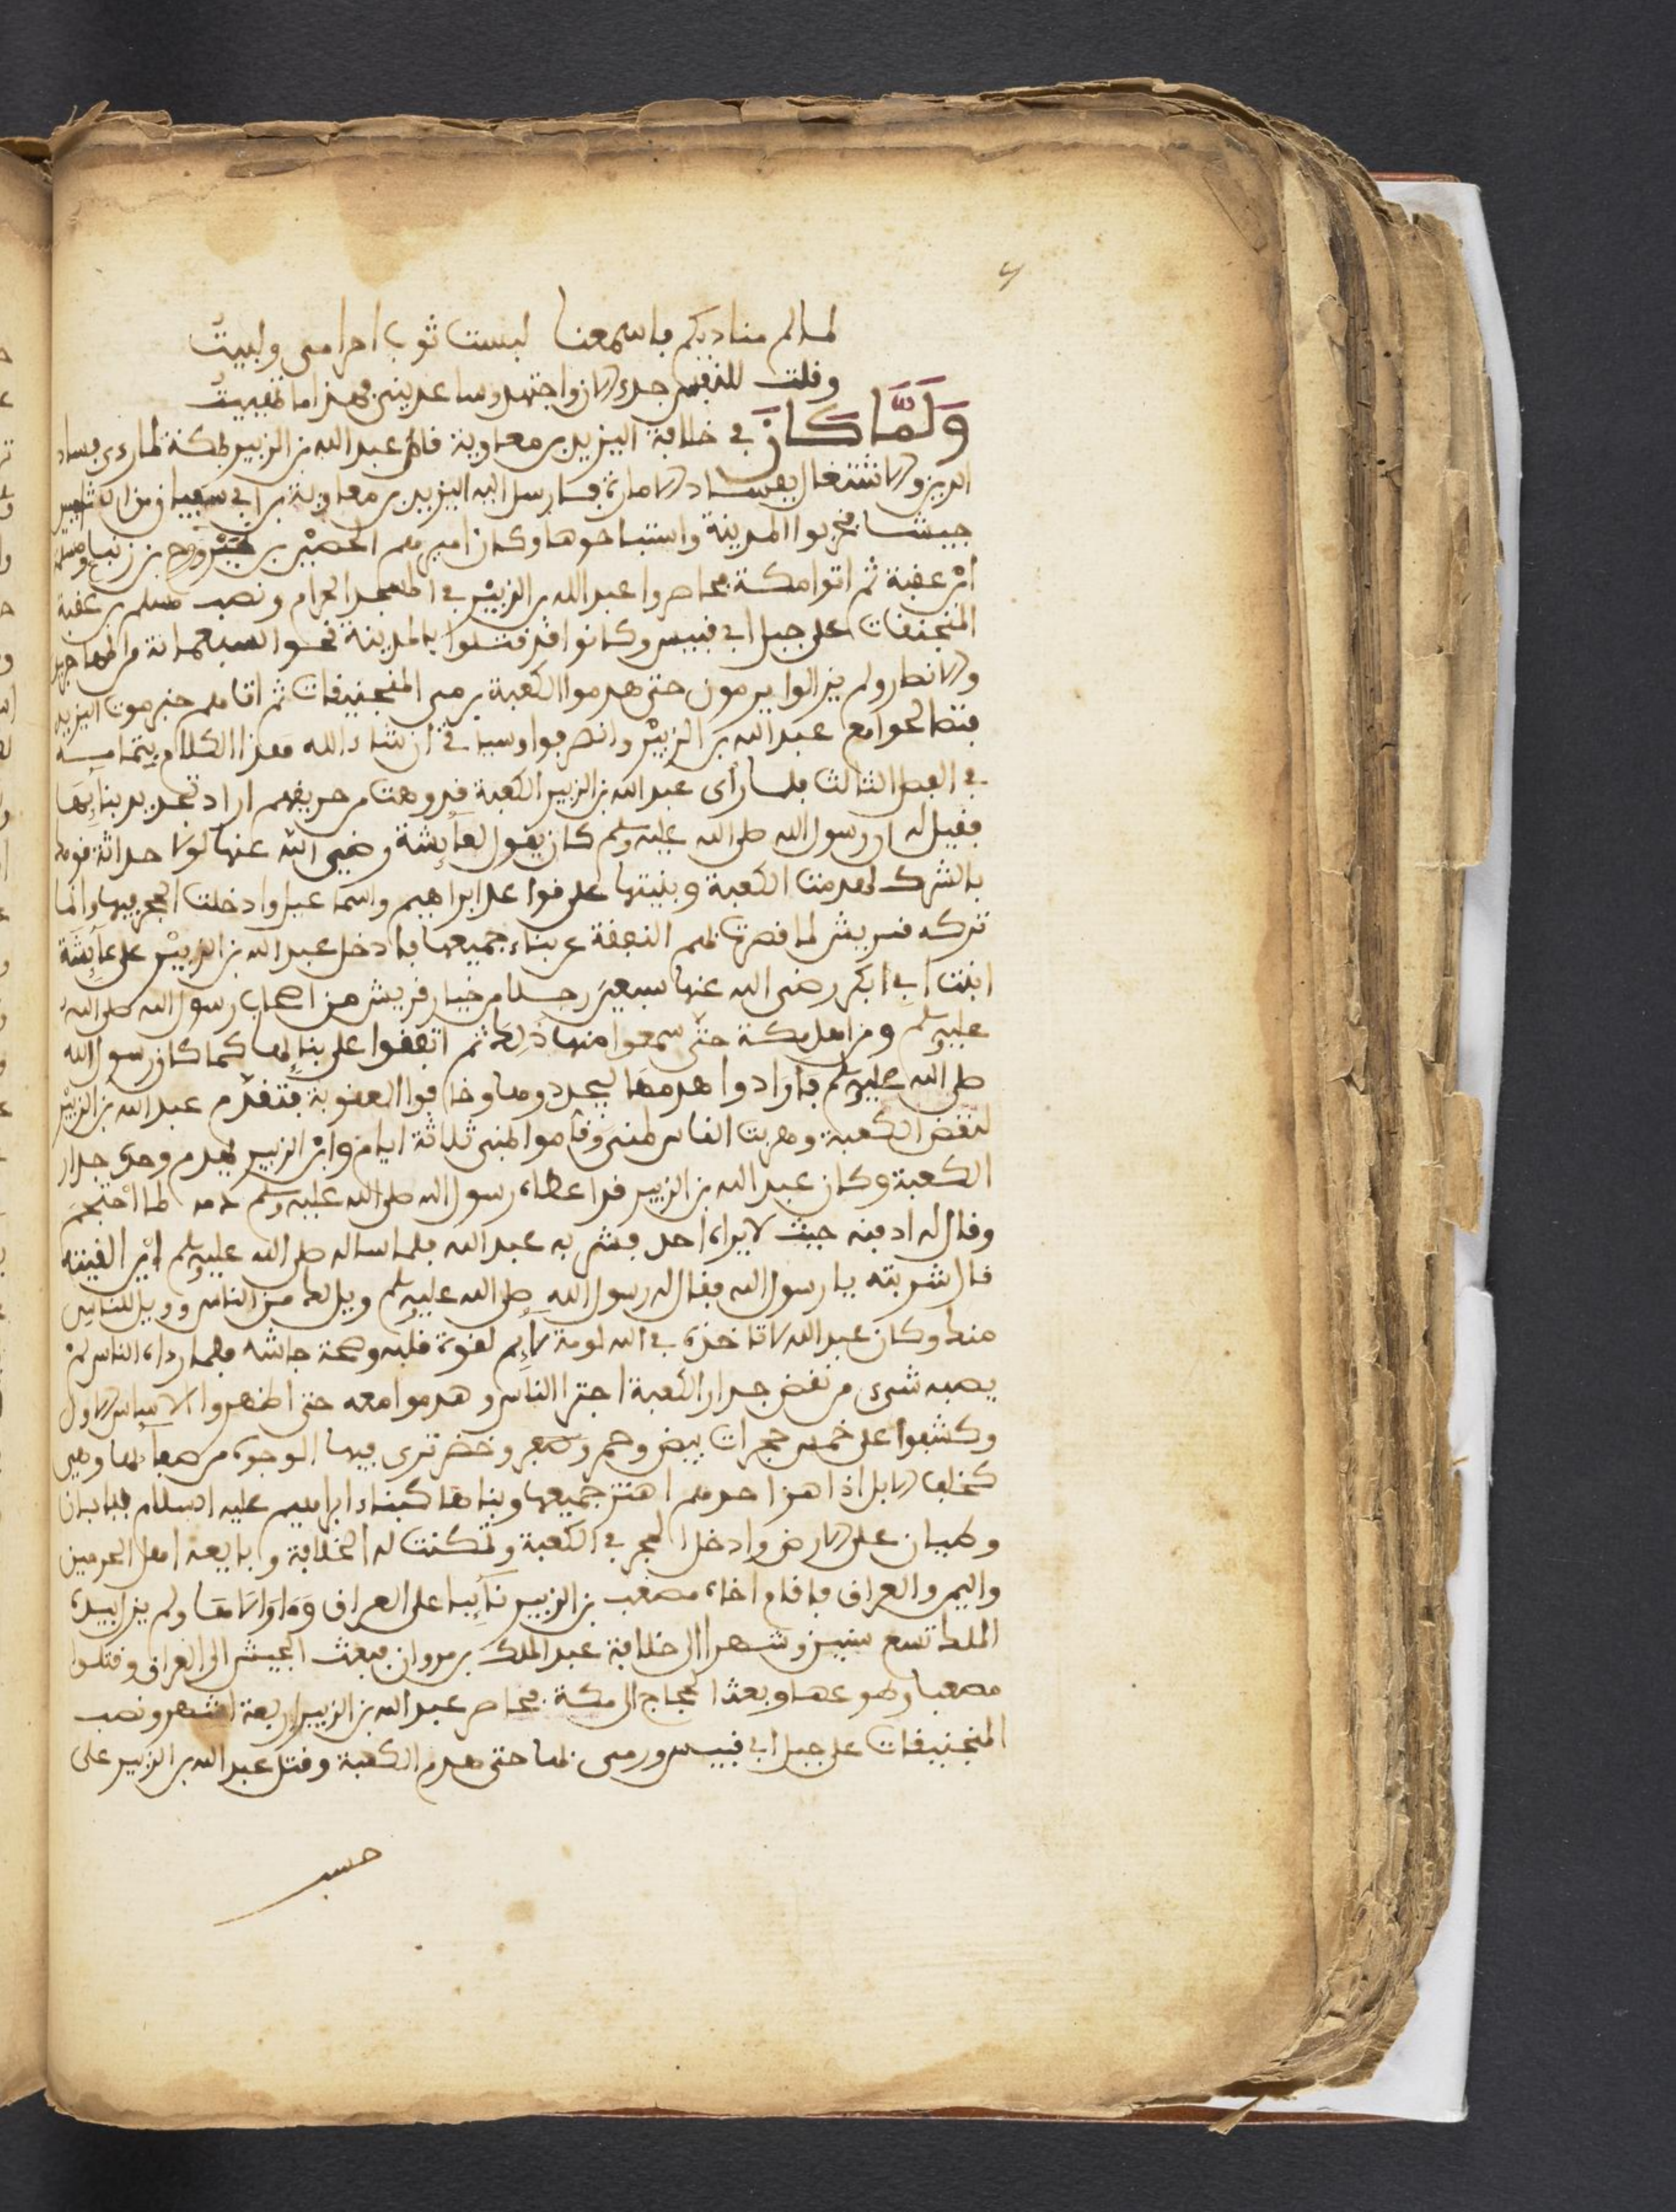 لما لم مناديكم باسمعنا لبست ثوب احرامي ولبيت
وقلت للنفس جدء الان واجتهد وساعديني فهذا ما تمنيت
وَلَمَّا كَانَ في خلافة اليزيد بن معاوية قام عبد الله بن الزبير بمكة لما رءى فساد
الدين والاشتغال بفساد الامارة فارسل اليه اليزيد بن معاوية بن ابي سفيان من الشام
جيشا فخربوا المدينة واستباحوها وكان اميرهم الحصين بن نمير وروح بن زنباع ومسلم
ابن عقبة ثم اتوا مكة فحاصروا عبد الله بن الزبير في المسجد الحرام ونصب مسلم بن عقبة
المنجنقات على جبل ابي قبيس وكانوا قد قتلوا بالمدينة نحو السبعمائة من المهاجرين
والانصار ولم يزالوا يرمون حتى هدموا الكعبة برمي المنجنيقات ثم اتاهم خبر موت اليزيد
فتصالحوا مع عبد الله بن الزبير وانصرفوا وسياتي ان شاء الله هذا الكلام بتمامه
في الفصل الثالث فلما رأى عبد الله بن الزبير الكعبة قد وهت من حريقهم اراد تجديد بنائها
فقيل له ان رسول الله صلى الله عليه وسلم كان يقول لعائشة رضي الله عنها لولا حداثة قومك
بالشرك لهدمت الكعبة وبنيتها على قواعد ابراهيم واسماعيل وادخلت الحجر فيها وانما
تركه قريش لما قصرت بهم النفقة عن بناء جميعها فادخل عبد الله بن الزبير على عائشة
ابنت ابي ابكر رضي الله عنها سبعين رجلا من خيار قريش من اصحاب رسول الله صلى الله
عليه وسلم ومن اهل مكة حتى سمعوا منها ذلك ثم اتفقوا على بنائها كما كان رسول الله
صلى الله عليه وسلم فارادوا هدمها ليجددوها وخافوا العقوبة فتقدم عبد الله بن الزبير
لنقض الكعبة وهربت الناس لمنى وقاموا بمنى ثلاثة ايام وابن الزبير يهدم وحده جدار
الكعبة وكان عبد الله بن الزبير قد اعطاه رسول الله صلى الله عليه وسلم دمه لما احتجم
وقال له ادفنه حيث لا يراه احد فشربه عبد الله فلما ساله صلى الله عليه وسلم اين القيته
قال شربته يا رسول الله فقال له رسول الله صلى الله عليه وسلم ويل لك من الناس وويل للناس
منك وكان عبد الله لا تاخذه في الله لومة لائم لقوة قلبه وصحة جاشه فلما رءاه الناس لم
يصبه شيء من نقض جدار الكعبة اجترا الناس وهدموا معه حتى اظهروا الاساس الاول
وكشفوا على خمس حجرات بيض وحمر وصفر وخضر ترى فيها الوجوه من صفائها وهي
كخلف الابل اذا هز احدهم اهتز جميعها وبناها كبناء ابراهيم عليه السلام ببابان
وطيان على الارض وادخل الحجر في الكعبة وتمكنت له الخلافة وبايعه اهل الحرمين
واليمن والعراق فاقام اخاه مصعب بن الزبير نائبا على العراق وما والاها ولم يزل بيده
الملك تسع سنين وشهرا الى خلافة عبد الملك بن مروان فبعث الجيش الى العراق وقتلوا
مصعبا وبعث الحجاج الى مكة فحاصر عبد الله بن الزبير اربعة اشهر ونصب
المنجنيقات على جبل ابي قبيس ورمى بها حتى هدم الكعبة وقتل عبد الله بن الزبير على
حسب